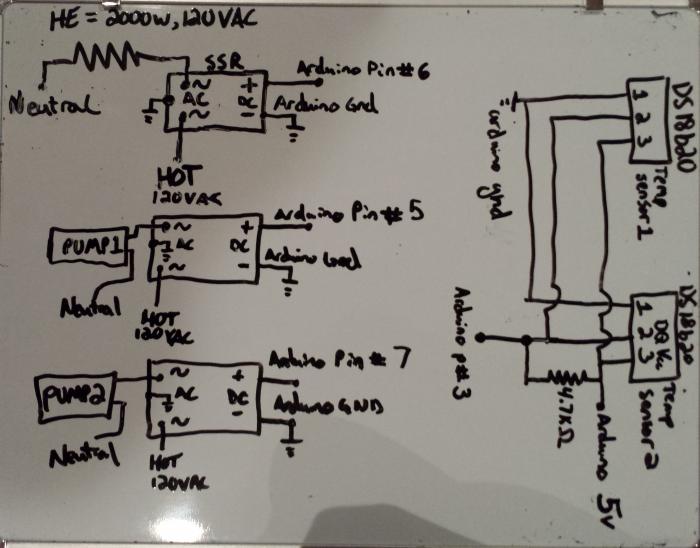 HE = 2000W, 120VAC
SSR
Arduino Pin# 6
~
AC
~
+
DC
-
Arduino Gnd
Neutral
HOT
120VAC
PUMP1
~
AC
~
+
DC
-
Arduino Pin# 5
Arduino Gnd
Neutral
HOT
120VAC
PUMP2
~
AC
~
+
DC
-
Arduino Pin # 7
Arduino GND
Neutral
HOT
120VAC
DS18b20
1
2
3
Temp
sensor1
arduino gnd
DS18b20
1
2
3
DQ
Temp
sensor2
Arduino p#3
4.7KΩ
Arduino 5v